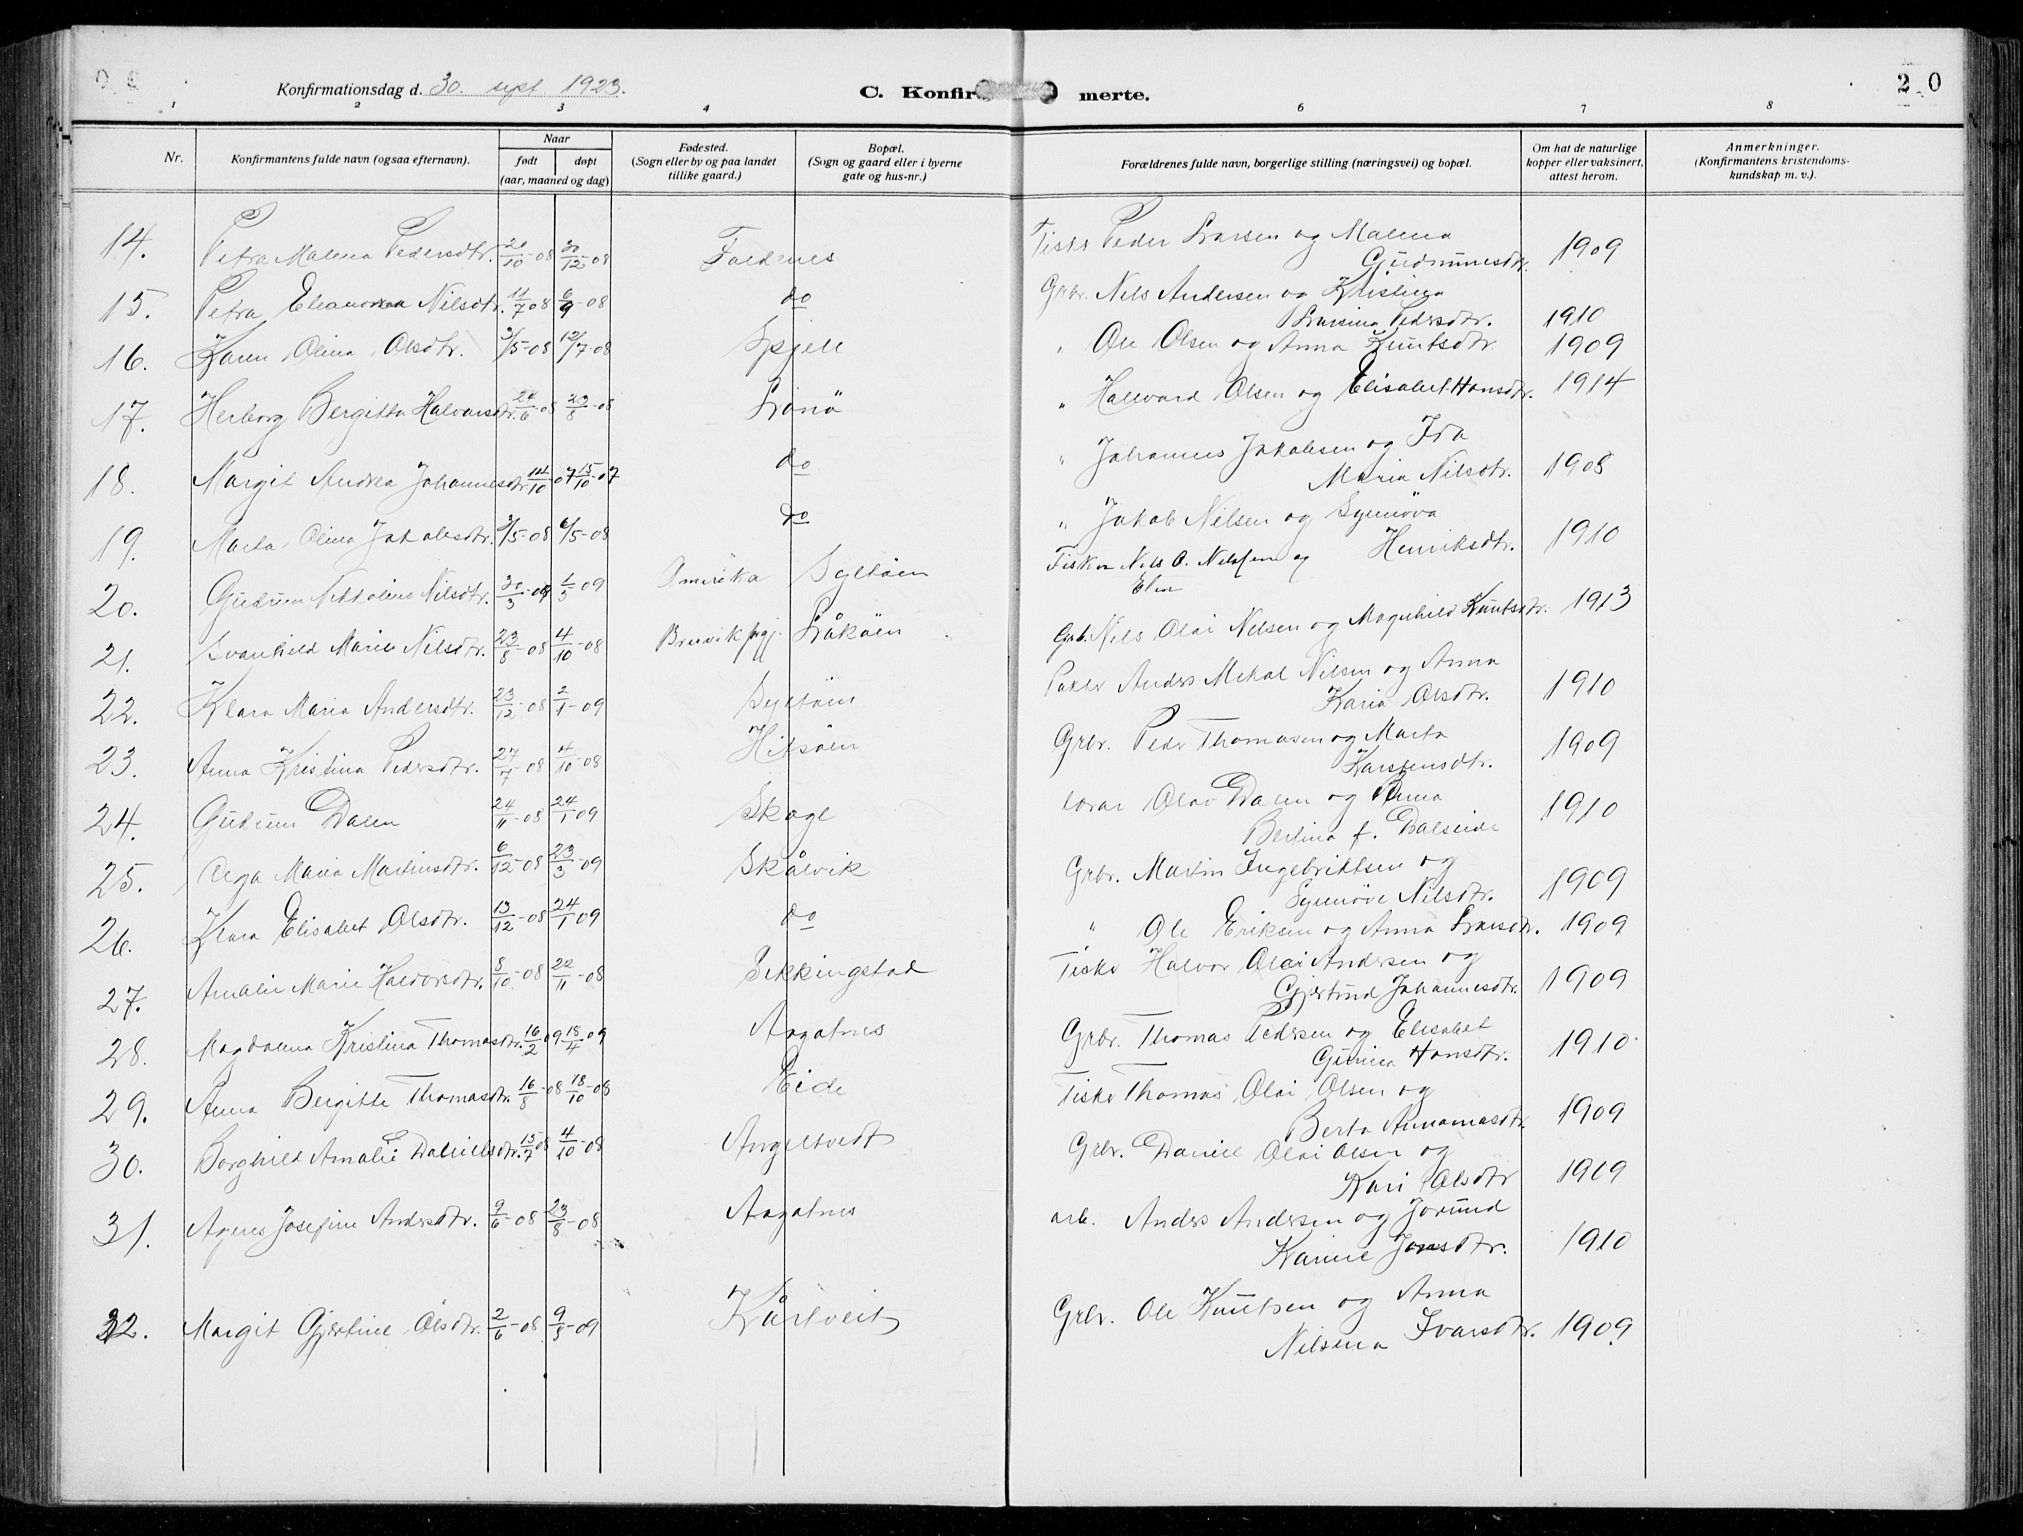 Konfirmationsdag d. 30. sept 1923.
C. Konfir merte.
2 0
1 2 3 4 6 7 8
Nr.
Konfirmantens fulde navn (ogsaa efternavn).
Naar
født døpt
(aar, maaned og dag)
Fødested.
(Sogn eller by og paa landet
tillike gaard.)
Bopæl.
(Sogn og gaard eller i byerne
gate og hus-nr.)
Forældrenes fulde navn, borgerlige stilling (næringsvei) og bopæl.
Om hat de naturlige
kopper eller vaksinert,
attest herom.
Anmerkninger.
(Konfirmantens kristendoms-
kundskap m. v.).
14. Petra Malena Pedersdtr. 20/10-08 20/12-08 Foldnes Fisker Peder Larsen og Malena
Gudmunesdtr. 1909
15. Petra Eleanora Nilsdtr. 11/7 08 6/9-08 do Grbr. Nils Andersen og Kristina
Larsina Pedersdtr. 1910
16. Karen Olina Olsdtr. 3/5-08 12/7-08 Spjell " Ole Olsen og Anna Knutsdtr. 1909
17. Herborg Bergitta Halvarsdtr. 24/6-08 23/8-08 Lönö " Hallvard Olsen og Elisabet Hansdtr. 1914
18. Margit Andrea Johannesdtr. 14/10 07 15/10-07 do " Johannes Jakobsen og Ida
Maria Nilsdtr. 1908
19. Marta Olina Jakobsdtr. 3/5-08 6/5-08 do " Jakob Nilsen og Synnöva
Henriksdtr. 1910
20. Gudrun Nikoline Nilsdtr. 30/3-09 1/5 09 Amerika Syltöen Fisker Nils O. Nilssen og
Elen
21. Svanhild Marie Nilsdtr. 23/8-08 4/10-08 Brevik prgj. Låköen Grb. Nils Olai Nilsen og Magnhild Knutsdtr. 1913
22. Klara Maria Andersdtr. 23/12-08 2/1-09 Syltöen Anders Mikal Nilsen og Anna
Karia Olsdtr. 1910
23. Anna Kristina Pedersdtr. 27/7-08 4/10-08 Hitsöen Grbr. Peder Thomasen og Marta
Karstensdtr. 1909
24. Gudrun Dalen 24/11-08 24/1 09 Skoge lærar Olav Dalen og Anna
Bertina f. Dalseide 1910
25. Olga Maria Martinsdtr. 6/12-08 23/3-09 Skålvik Grbr. Martin Ingebriktsen og
Synnöve Nilsdtr. 1909
26. Klara Elisabet Olsdtr. 13/12-08 24/1 09 do " Ole Eriksen og Anna Larsdtr. 1909
27. Amalie Marie Haldorsdtr. 8/10-08 22/11-08 Sekkingstad Fisker Halvor Olai Andersen og
Gjertrud Johannesdtr. 1909
28. Magdalena Kristina Thomasdtr. 16/2 09 18/4-09 Aagatnes Grbr. Thomas Pedersen og Elisabet
Gurina Hansdtr. 1910
29. Anna Bergitte Thomasdtr. 16/8-08 18/10-08 Eide Fisker Thomas Olai Olsen og
Berta Annamasdtr. 1909
30. Borghild Amalie Danielsdtr. 15/7 08 4/10-08 Angeltvedt Grbr. Daniel Olai Olsen og
Kari Olsdtr 1909
31. Agnes Josefine Andersdtr. 9/6-08 23/8-08 Aagatnes arb. Anders Andersen og Jorund
Karine Jonsdtr. 1910
32. Margit Gjertine Olsdtr. 2/6-08 9/5-09 Kårtveit Grbr. Ole Knutsen og Anna
Nilsena Ivarsdtr. 1909